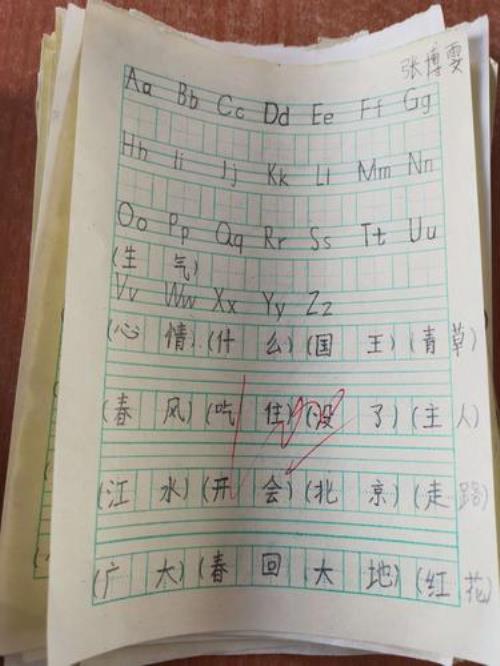 张博雯
Aa Bb Cc Dd Ee Ff Gg
Hh Ii Jj Kk Ll Mm Nn
Oo Pp Qq Rr Ss Tt Uu
(生 气)
Vv Ww Xx Yy Zz
(心 情)(什 么)(国 王)(青 草)
(春 风)(吃 住)(没 了)(主 人)
(江 水)(开 会)(北 京)(走 路)
(广 大)(春 回 大 地)(红 花)